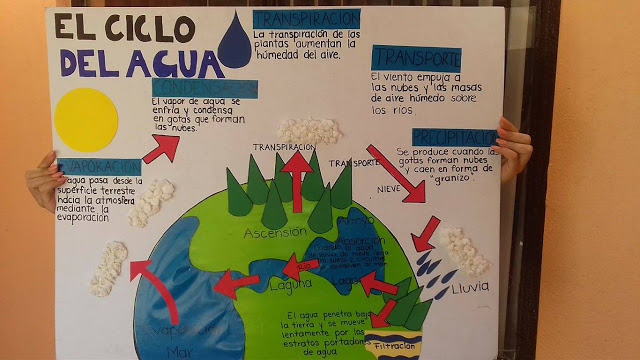 EL CICLO
DEL AGUA
TRANSPIRACIÓN
La transpiración de las
plantas aumentan la
húmedad del aire.
TRANSPORTE
El viento empuja a
las nubes y las masas
de aire húmedo sobre
los ríos.
El vapor de agua se
enfría y condensa
en gotas que forman
las nubes.
PRECIPITACIÓN
Se produce cuando las
gotas forman nubes
y caen en forma de
"granizo".
EVAPORACIÓN
agua pasa desde la
superficie terrestre
hacia la atmosfera
mediante la
evaporación
TRANSPIRACIÓN
TRANSPORTE
NIEVE
Ascensión
Absorción
Lluvia
Laguna
Evaporación
Mar
El agua penetra bajo
la tierra y se mueve
lentamente por los
estratos portadores
de agua
Filtración